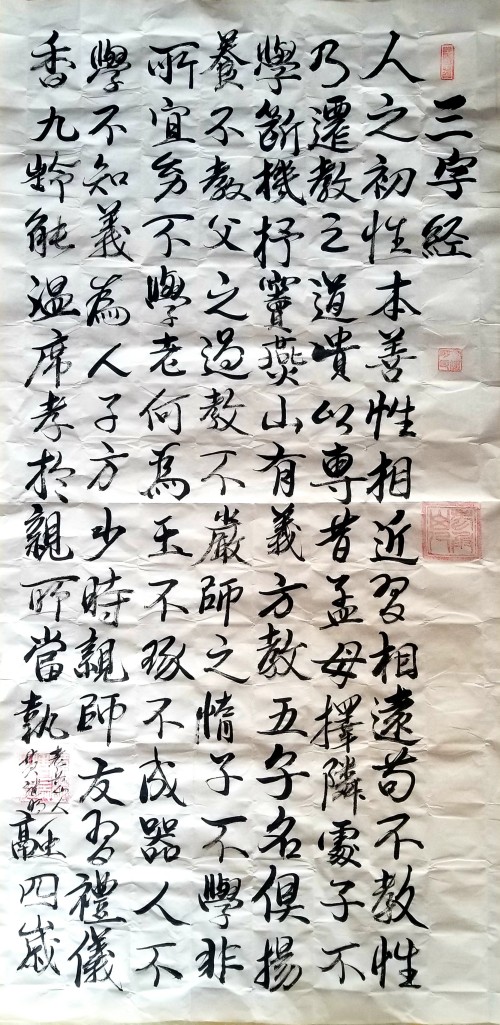 三字经
人之初性本善性相近習相遠苟不教性
乃遷教之道貴以專昔孟母擇隣處子不
學斷機杼竇燕山有義方教五子名俱揚
養不教父之過教不嚴師之惰子不學非
所宜幼不學老何為玉不琢不成器人不
學不知義為人子方少時親師友習禮儀
香九齡能溫席孝於親所當執融四歲